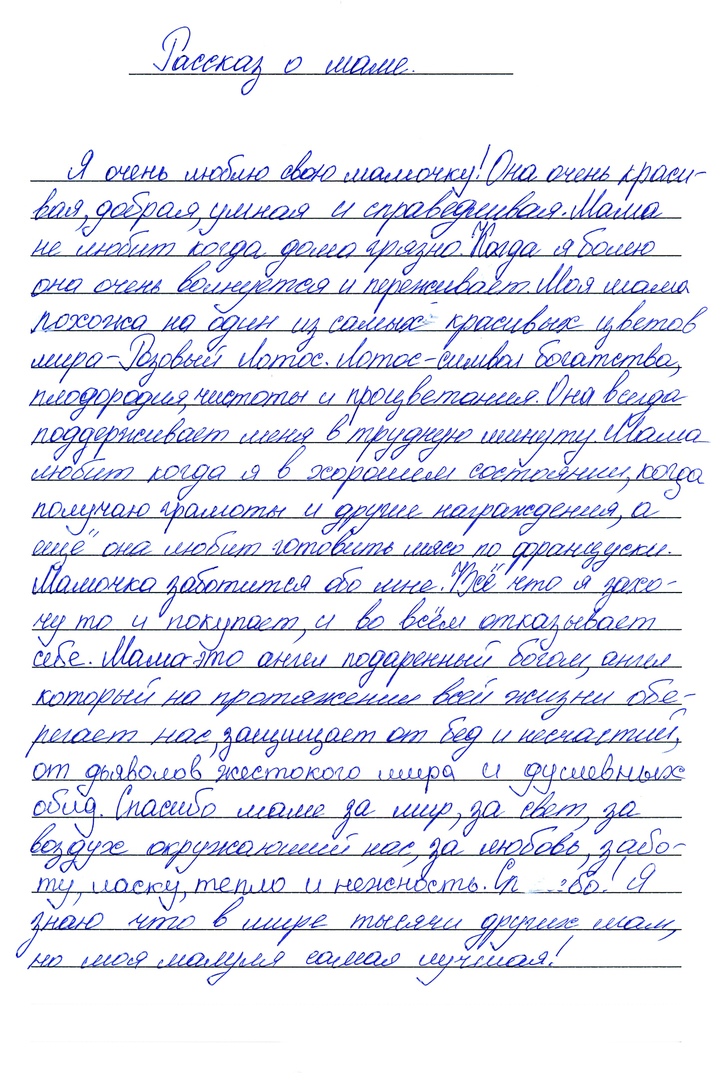 Рассказ о маме.
Я очень люблю свою мамочку! Она очень краси-
вая, добрая, умная и справедливая. Мама
не любит когда дома грязно. Когда я болею
она очень волнуется и переживает. Моя мама
похожа на один из самых красивых цветов
мира-Розовый Лотос. Лотос-символ богатства,
плодородия, чистоты и процветания. Она всегда
поддерживает меня в трудную минуту. Мама
любит когда я в хорошем состоянии, когда
получаю грамоты и другие награждения, а
ещё она любит готовить мясо по француски.
Мамочка заботится обо мне. Всё что я захо-
чу то и покупает, и во всём отказывает
себе. Мама-это ангел подаренный богом, ангел
который на протяжении всей жизни обе-
регает нас, защищает от бед и несчастий,
от дьяволов жестокого мира и душевных
обид. Спасибо маме за мир, за свет, за
воздух окружающий нас, за любовь, забо-
ту, ласку, тепло и нежность. Я
знаю что в мире тысячи других мам,
но моя мамуля самая лучшая!